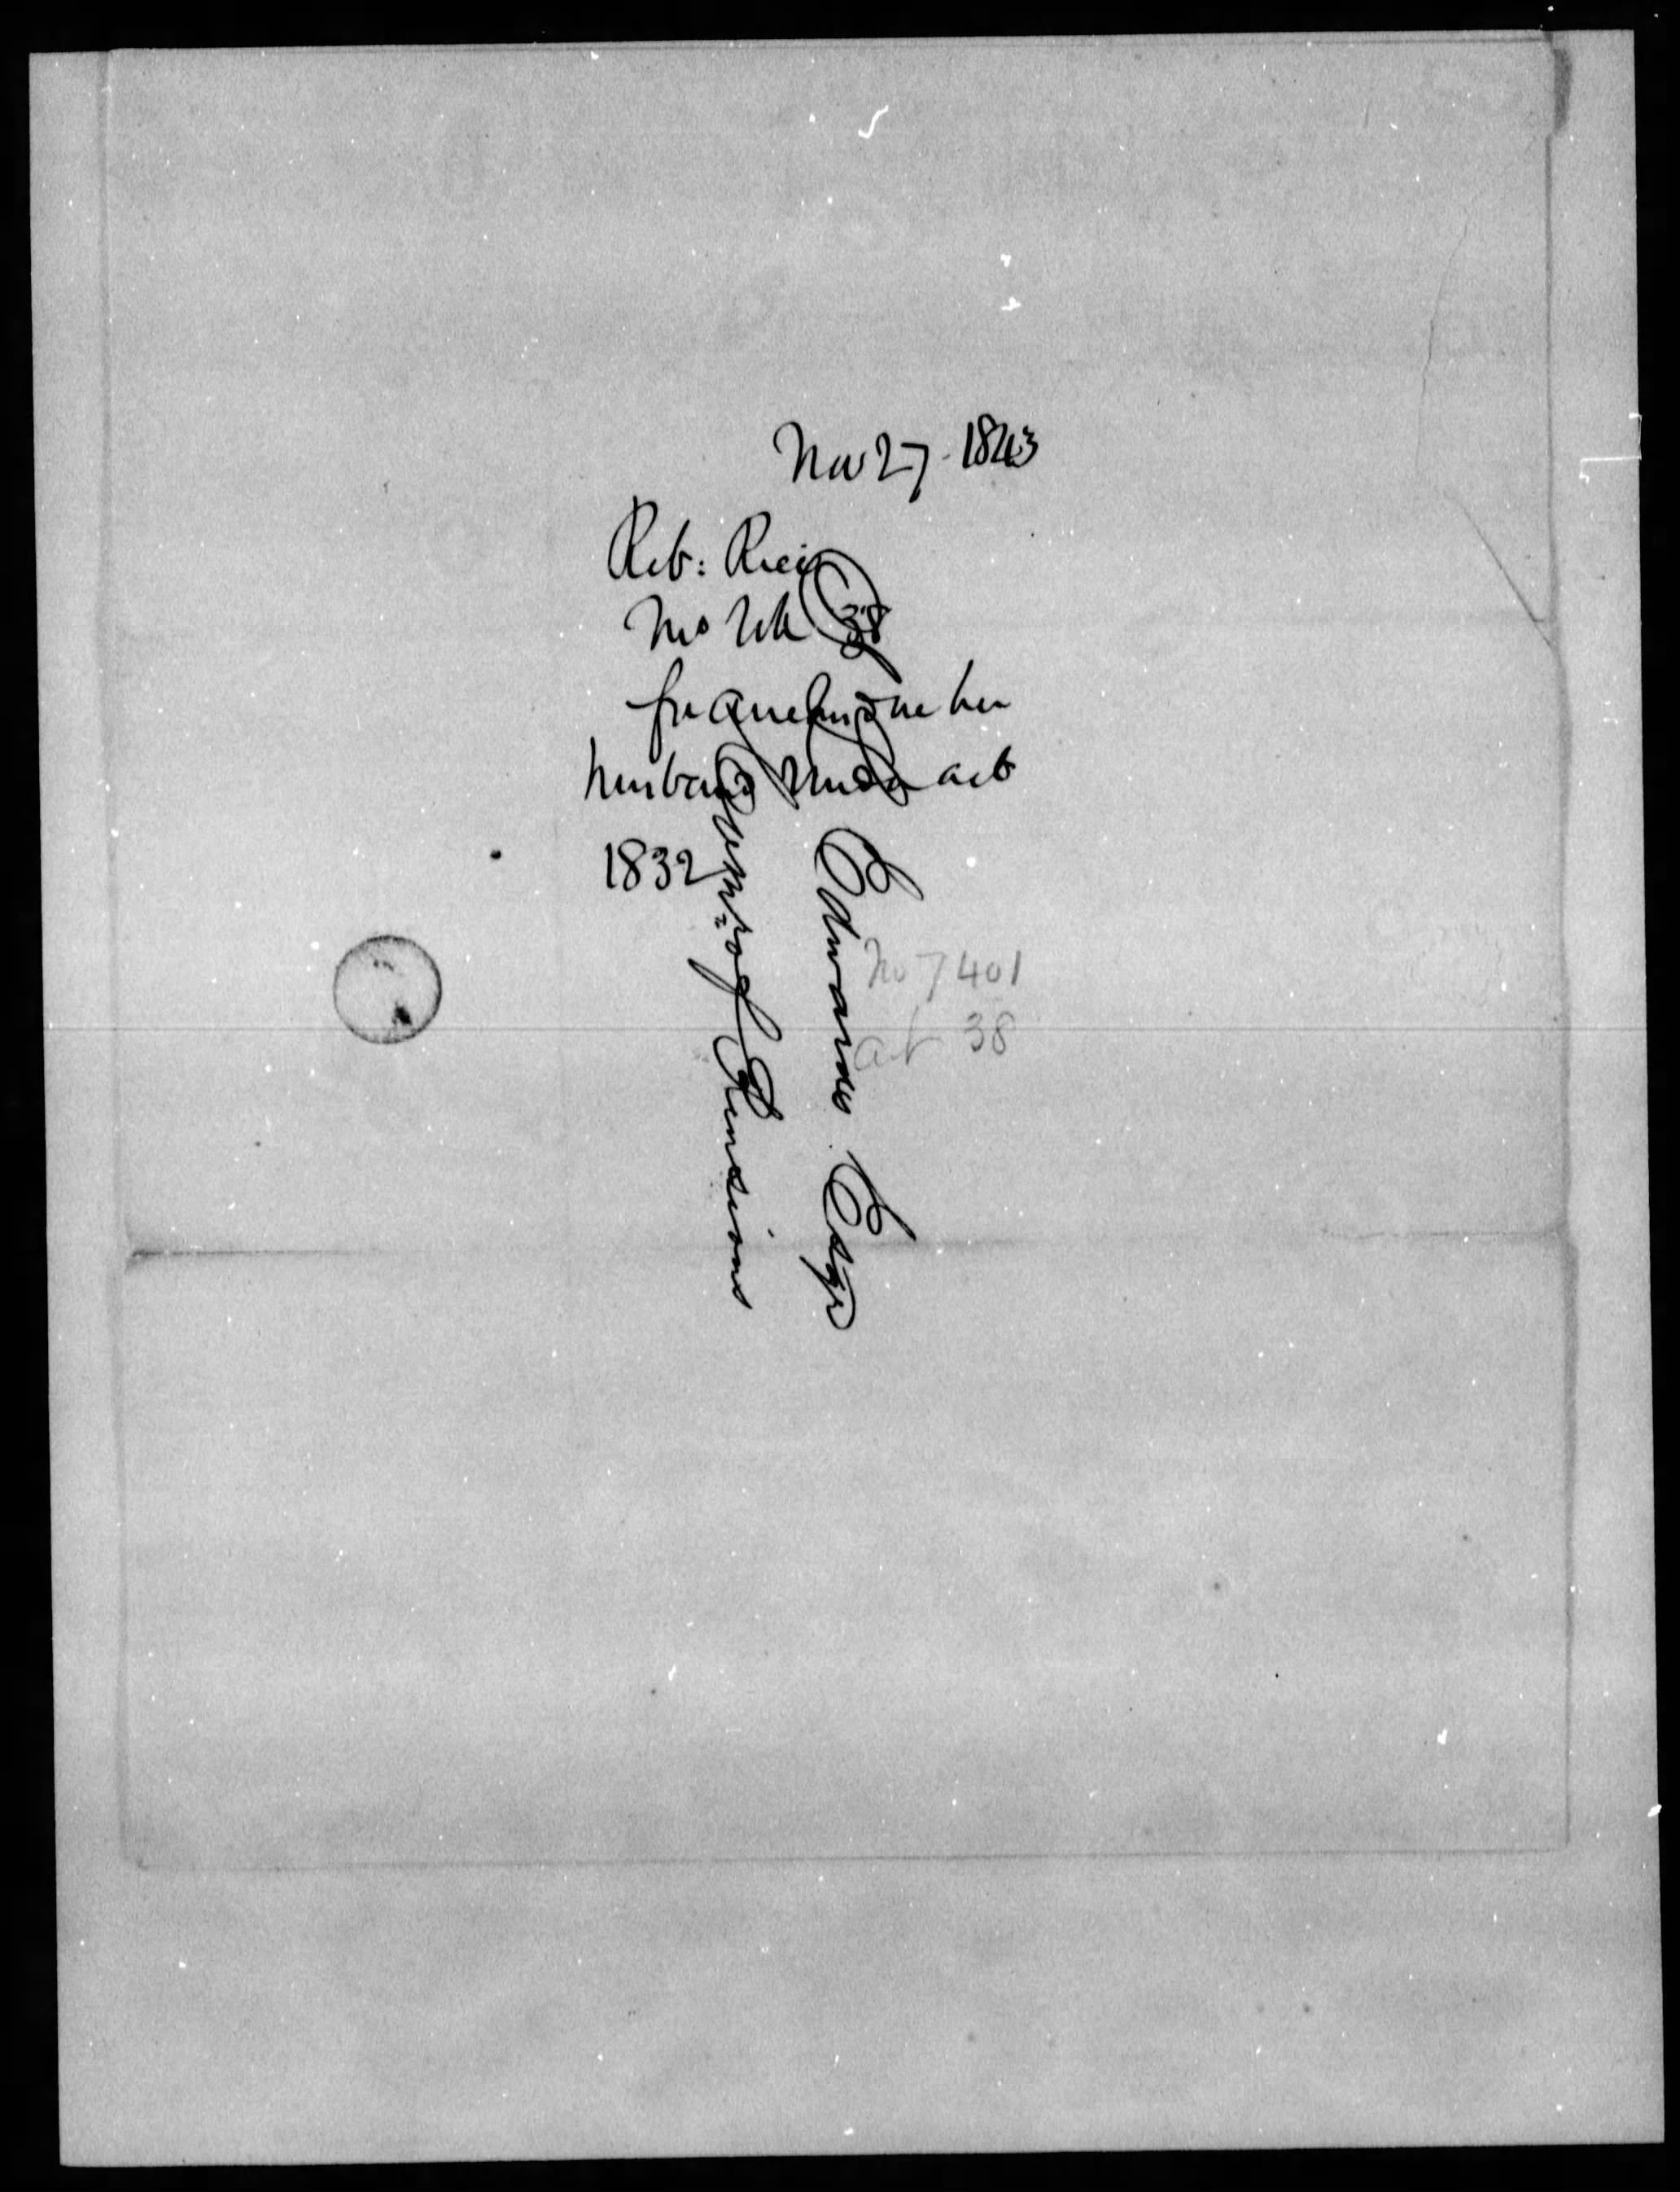 Nov 27. 1843
Reb: Rice
Mo Wh 38
for arrears due her
husband under act
1832
No 7401
at 38
Edwards Esqr
Comr: of Pensions